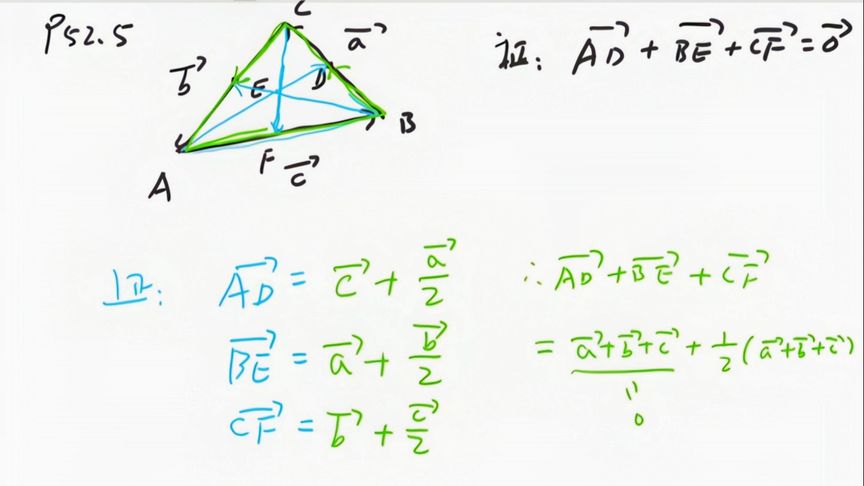 P52.5
C
a⃗
b⃗
E
D
B
A
F
c⃗
证: AD⃗ + BE⃗ + CF⃗ = 0⃗
证: AD⃗ = c⃗ + a⃗/2
BE⃗ = a⃗ + b⃗/2
CF⃗ = b⃗ + c⃗/2
∴ AD⃗ + BE⃗ + CF⃗
= a⃗+b⃗+c⃗ + 1/2(a⃗+b⃗+c⃗)
0